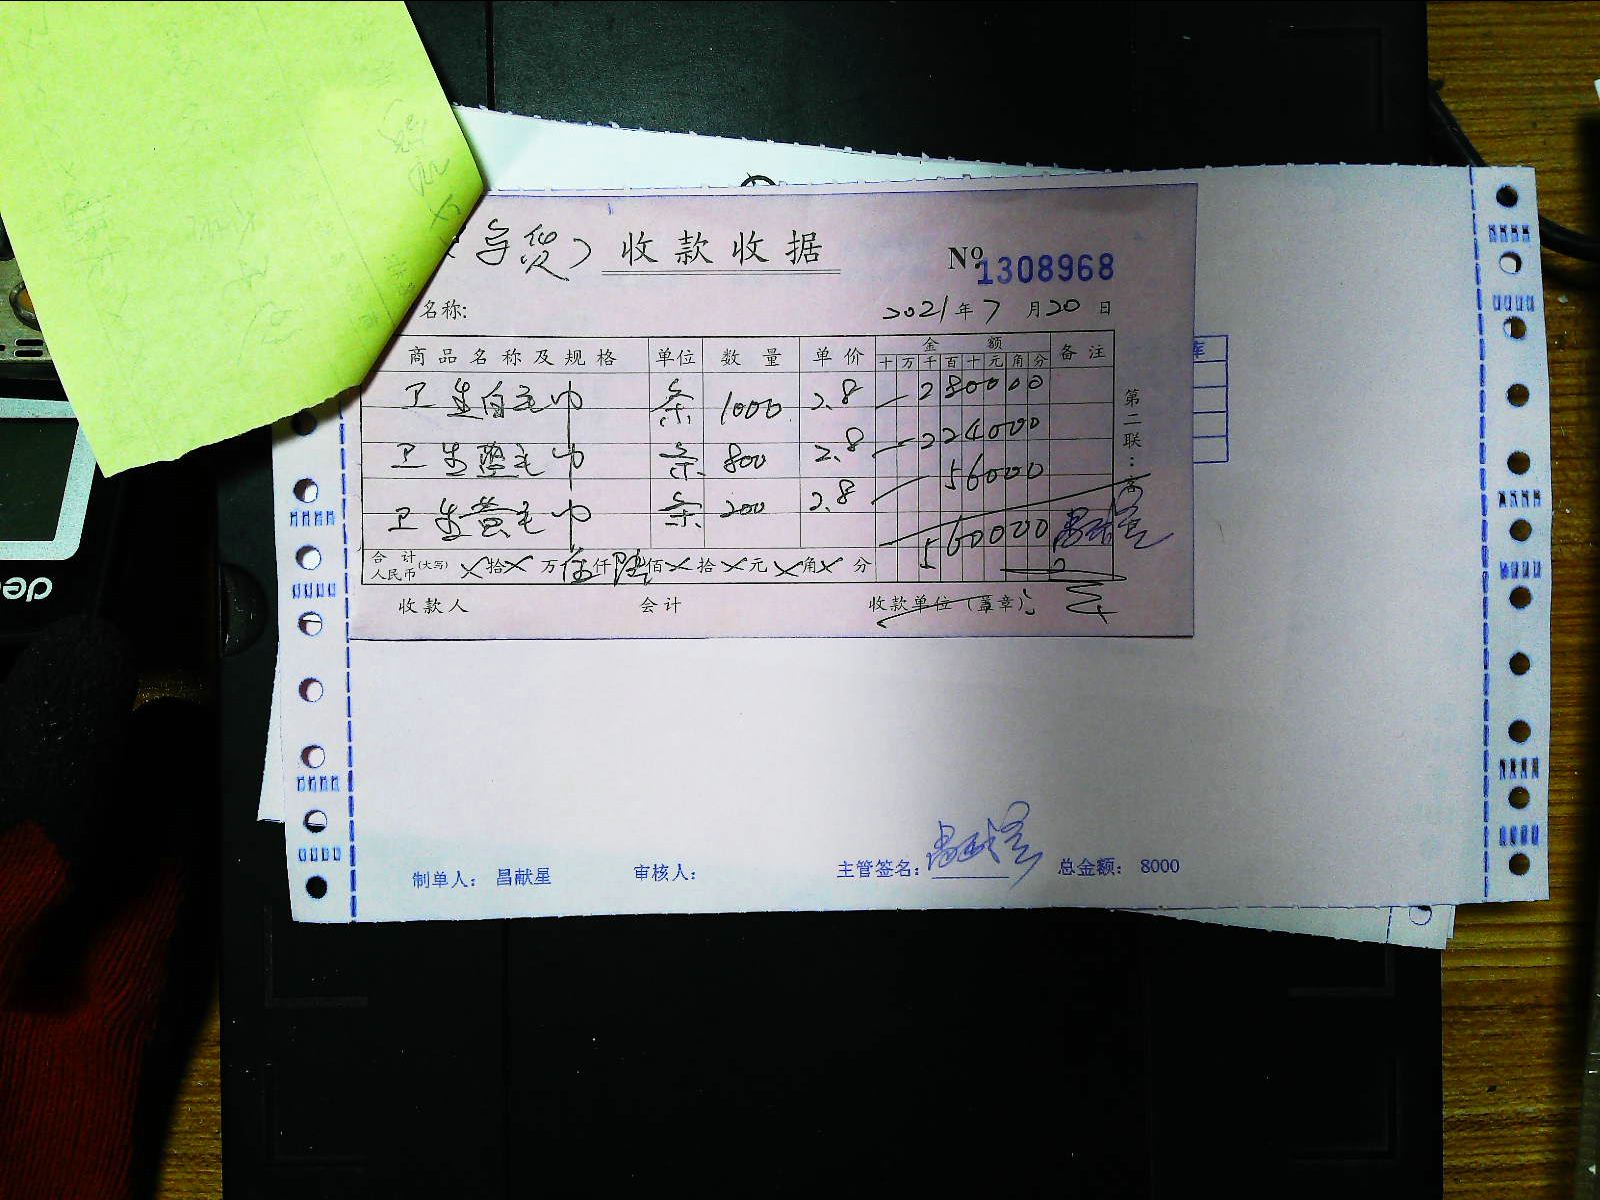 收款收据
№ 1308968
名称: 2021年7月20日
商品名称及规格 单位 数量 单价 金额 备注
十万千百十元角分
卫生白毛巾 条 1000 2.8 280000
卫生蓝毛巾 条 800 2.8 224000
卫生黄毛巾 条 200 2.8 56000
560000
合计人民币(大写) ×拾×万伍仟陆佰×拾×元×角×分
收款人 会计 收款单位(盖章)
第二联:
制单人: 昌献星 审核人: 主管签名: 总金额: 8000
deli